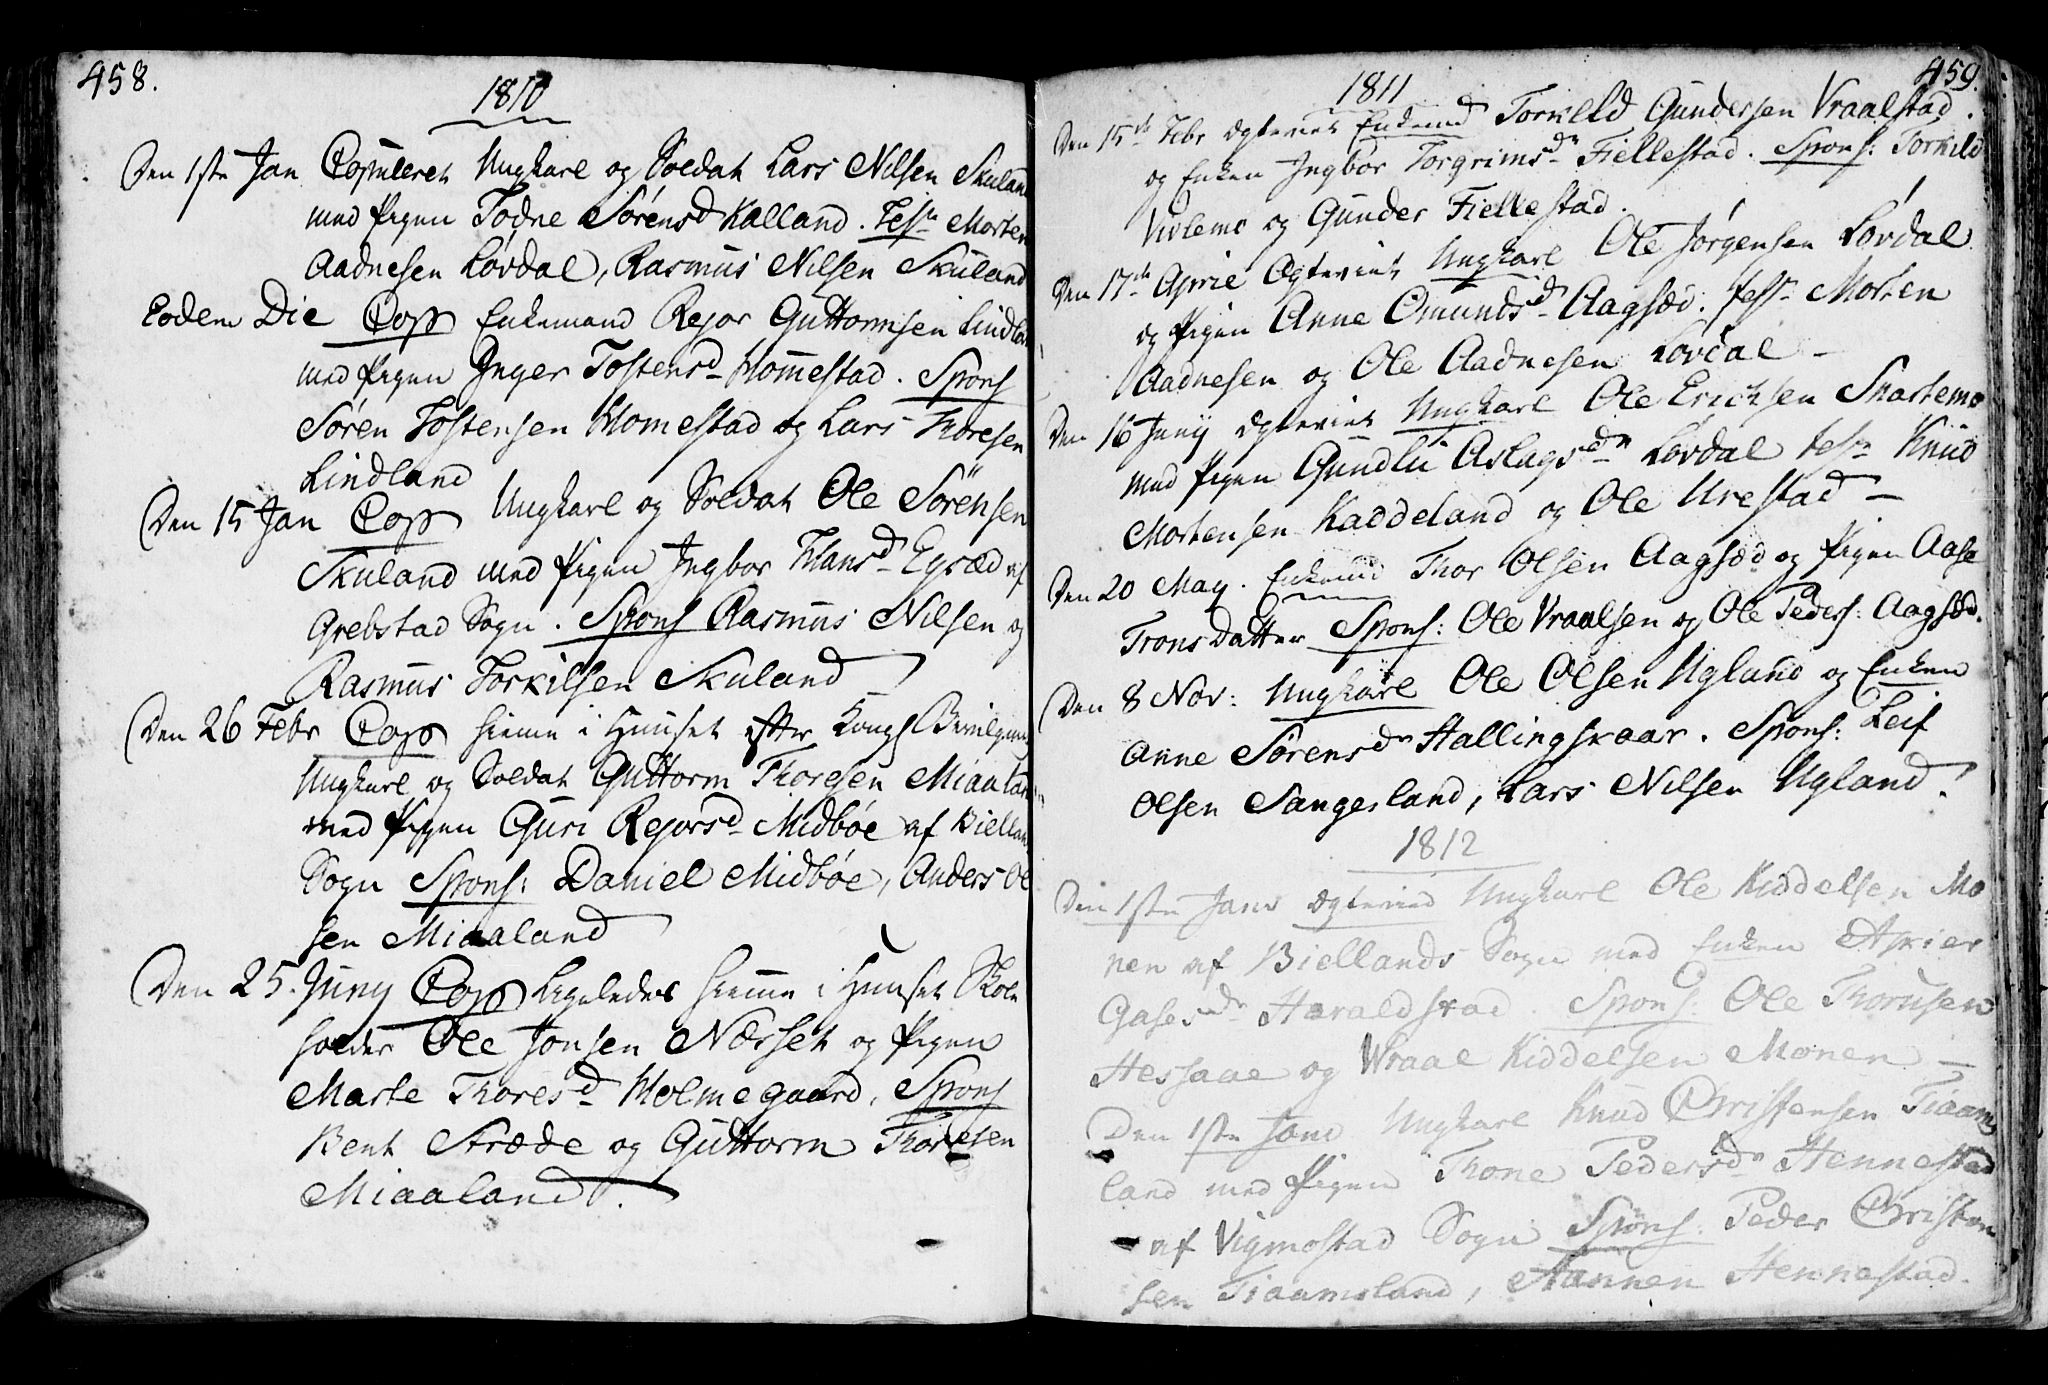 458.
1810
Den 1ste Jan Copuleret Ungkarl og Soldat Lars Nilsen Skuland
med Pigen Todne Sørensd Kalland. Test. Morten
Aadnesen Løvdal, Rasmus Nilsen Skuland
Eodem Die Cop Enkemand Rejor Guttormsen Lindland
med Pigen Inger Tostensd Homestad. Spons
Søren Tostensen Homestad og Lars Thoresen
Lindland
Den 15 Jan Cop Ungkarl og Soldat Ole Sörensen
Skuland med Pigen Ingbor Hansd Egsæd af
Grebstad Sogn. Spons Rasmus Nilsen og
Rasmus Torkilsen Skuland
Den 26 Febr Cop hiemme i Huuset efter Kongl Bevilgning
Ungkarl og Soldat Guttorm Thoresen Miaaland
med Pigen Guri Rejorsd Midbøe af Bielland
Sogn Spons: Daniel Midbøe, Anders Ol
sen Miaaland
Den 25. Juny Cop Ligeledes hiemme i Huuset Skole
holder Ole Jonsen Næsset og Pigen
Marte Thoresd Holmegaard. Spons
Bent Stræde og Guttorm Thoresen
Miaaland.
459.
1811
Den 15de Febr Egteviet Enkemd Torkild Gundersen Vraalstad.
og Enken Ingbor Torgrimsdr Fiellestad. Spons: Torkild
Violemo og Gunder Fiellestad.
Den 17de April Egteviet Ungkarl Ole Jørgensen Løvdal
og Pigen Anne Omundsd Aagsæd. Test. Morten
Aadnesen og Ole Aadnesen Løvdal -
Den 16 Juny Egteviet Ungkarl Ole Erichsen Skartemo
med Pigen Gundlu Aslagsdr Løvdal Test Knud
Mortensen Kaddeland og Ole Urestad -
Den 20 May. Enkemd Thor Olsen Aagsæd og Pigen Aase
Trons Datter Spons: Ole Vraalsen og Ole Peders: Aagsæd.
Den 8 Nov: Ungkarl Ole Olsen Ugland og Enken
Anne Sørensdr Hallingskaar. Spons: Leif
Olsen Sangesland, Lars Nilsen Ugland.
1812
Den 1ste Janv Egteviet Ungkarl Ole Kiddelsen Mo
nen af Biellands Sogn med Enken Asrier
Gasesdr Haraldstad. Spons: Ole Thorusen
Hessaae og Wraal Kiddelsen Monen -
Den 1ste Janv Ungkarl Knud Christensen Tiaams
land med Pigen Thone Pedersdr Hennestad
af Vigmostad Sogn Spons: Peder Christen
sen Tiaamsland, Aannen Hennestad.